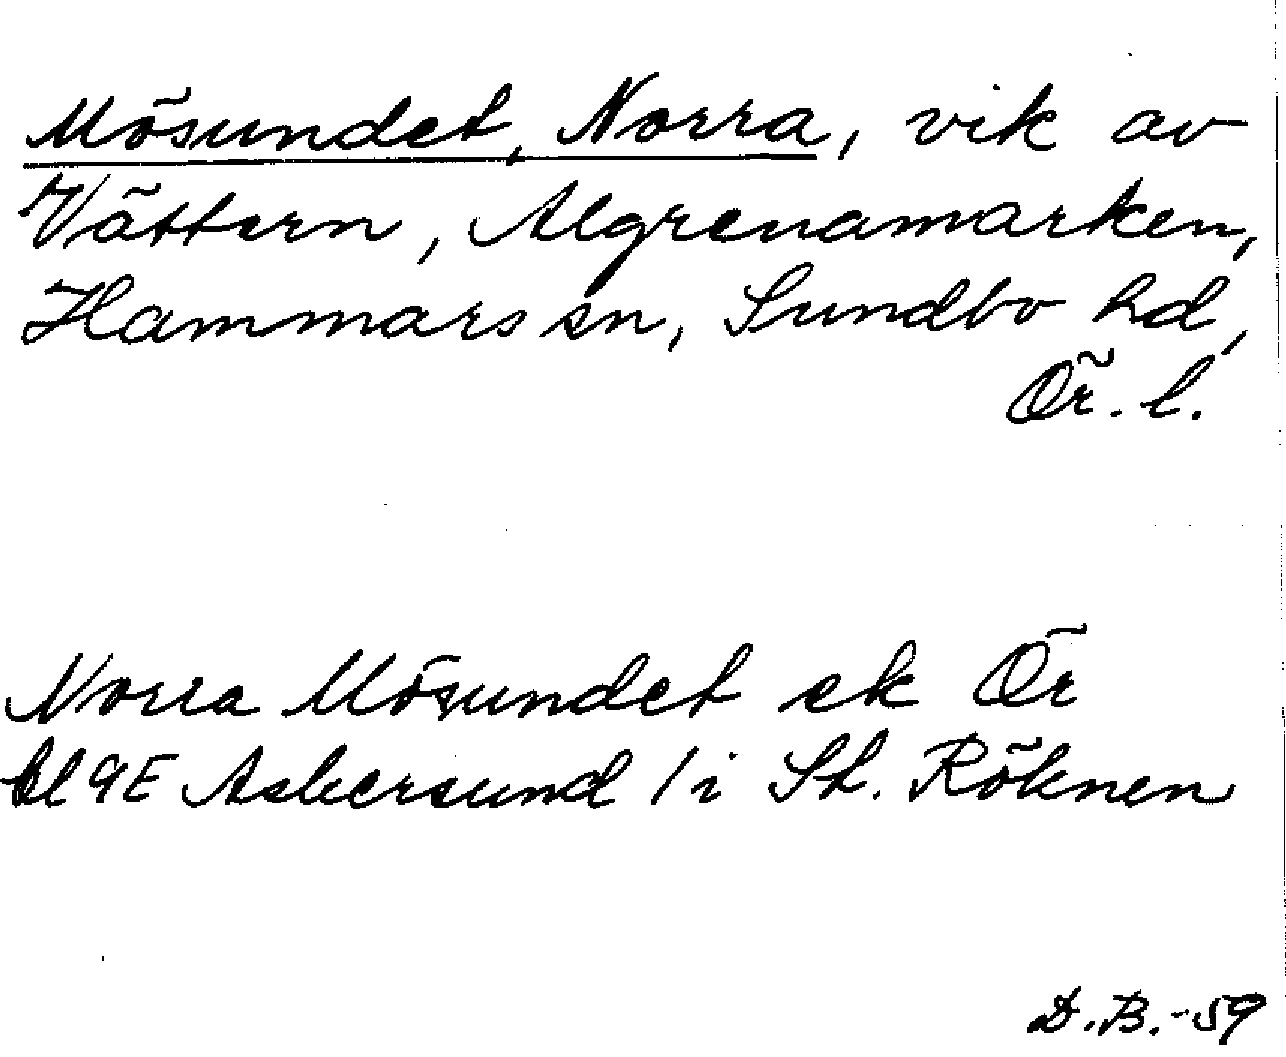 Mösundet, Norra, vik av
Vättern, Algrenamarken,
Hammars sn, Sundbo hd,
Ör. l.
Norra Mösundet ek Ör
bl 9E Askersund / i St. Röknen
D.B.-59